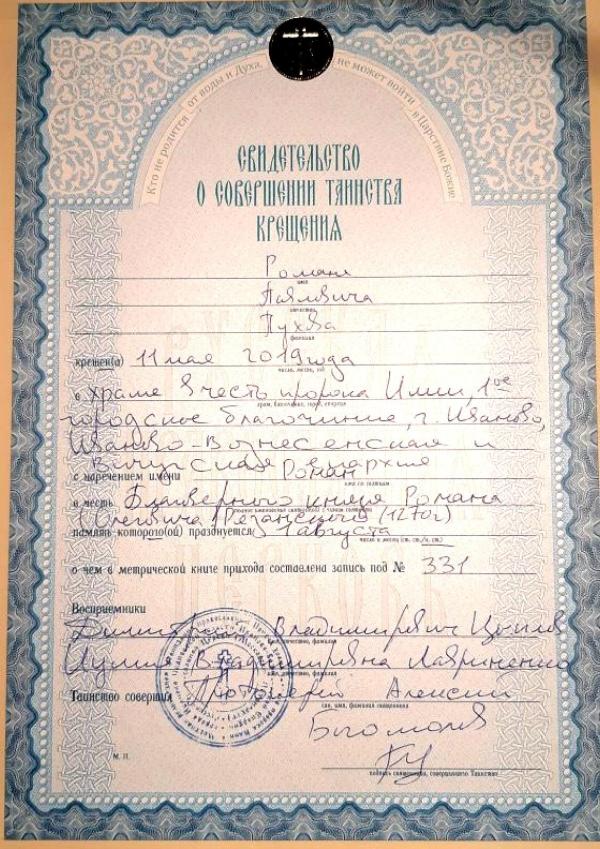 Кто не родится от воды и Духа, не может войти в Царствие Божие
СВИДЕТЕЛЬСТВО
О СОВЕРШЕНИИ ТАИНСТВА
КРЕЩЕНИЯ
Романа
имя
Павловича
отчество
Пухова
фамилия
крещен(а) 11 мая 2019 года
число, месяц, год
в храме в честь пророка Илии, 1ое
храм, благочиние, город, епархия
городское благочиние, г. Иваново,
Иваново-Вознесенская и
Вичугская епархия
с наречением имени Роман
имя по святцам
в честь Благоверного князя Романа
(Олеговича) Рязанского (1270г)
память которого(ой) празднуется 1 августа
число и месяц (ст. ст./н. ст.)
о чем в метрической книге прихода составлена запись под № 331
Восприемники
Владимирович
имя, отчество, фамилия
Владимировна Лавриненко
имя, отчество, фамилия
Таинство совершил Протоиерей Алексий
сан, имя, фамилия священника
М. П.
подпись священника, совершившего Таинство